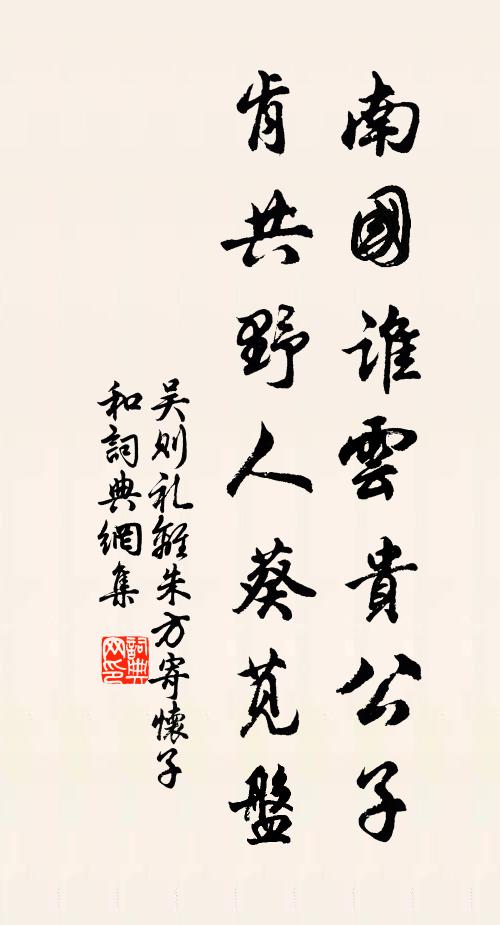 南國誰雲貴公子
肯共野人葵莧盤
吴则礼離朱方寄懷子
和詞典網集
詞典网印